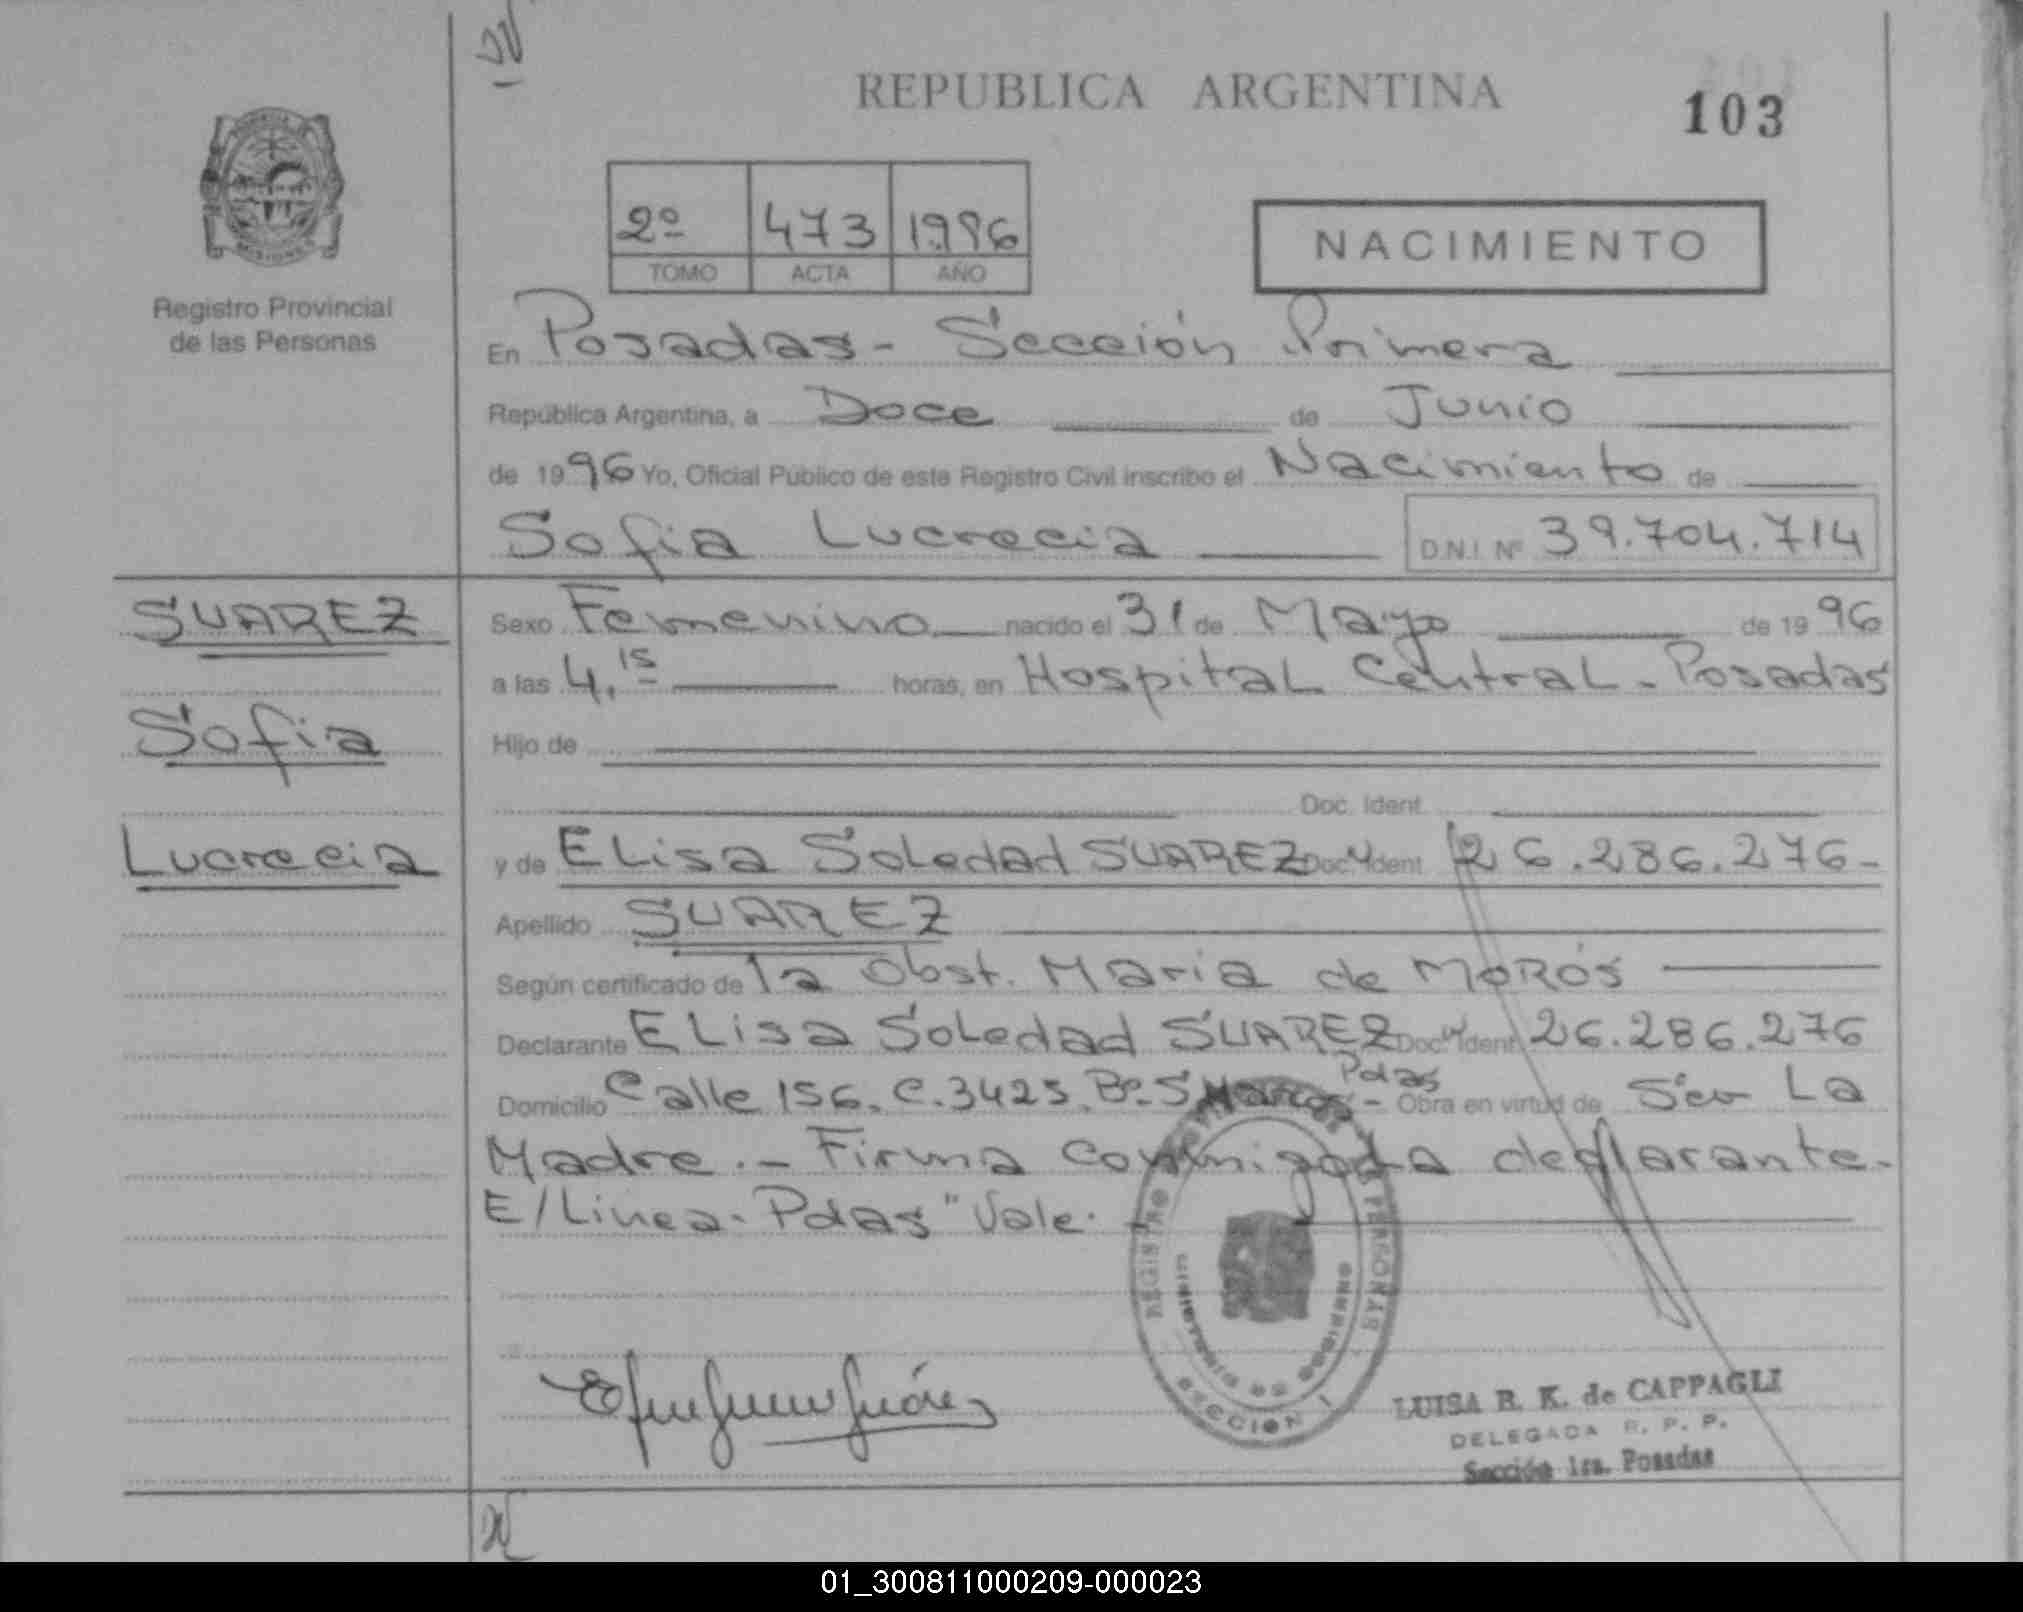 REPUBLICA ARGENTINA
103
2º 473 1996
TOMO ACTA AÑO
NACIMIENTO
Registro Provincial
de las Personas
En Posadas - Sección Primera
República Argentina, a Doce de Junio
de 1996 Yo, Oficial Público de este Registro Civil inscribo el Nacimiento de
Sofia Lucrecia D.N.I. Nº 39.704.714
SUAREZ
Sofia
Lucrecia
Sexo Femenino nacido el 31 de Mayo de 1996
a las 4,15 horas, en Hospital Central - Posadas
Hijo de
Doc. Ident.
y de Elisa Soledad SUAREZ Doc. Ident. 26.286.276-
Apellido SUAREZ
Según certificado de la Obst. Maria de MORÓS
Declarante Elisa Soledad SUAREZ Doc. Ident. 26.286.276
Pdas
Domicilio Calle 156. C. 3425. Bº S. Marcos - Obra en virtud de Ser La
Madre. - Firma conmigo la declarante.
E/Linea. Pdas" Vale.
REGISTRO PERSONAS
MINISTERIO DE GOBIERNO
SECCION 1
LUISA R. K. de CAPPAGLI
DELEGADA R. P. P.
Sección 1ra. Posadas
01_300811000209-000023